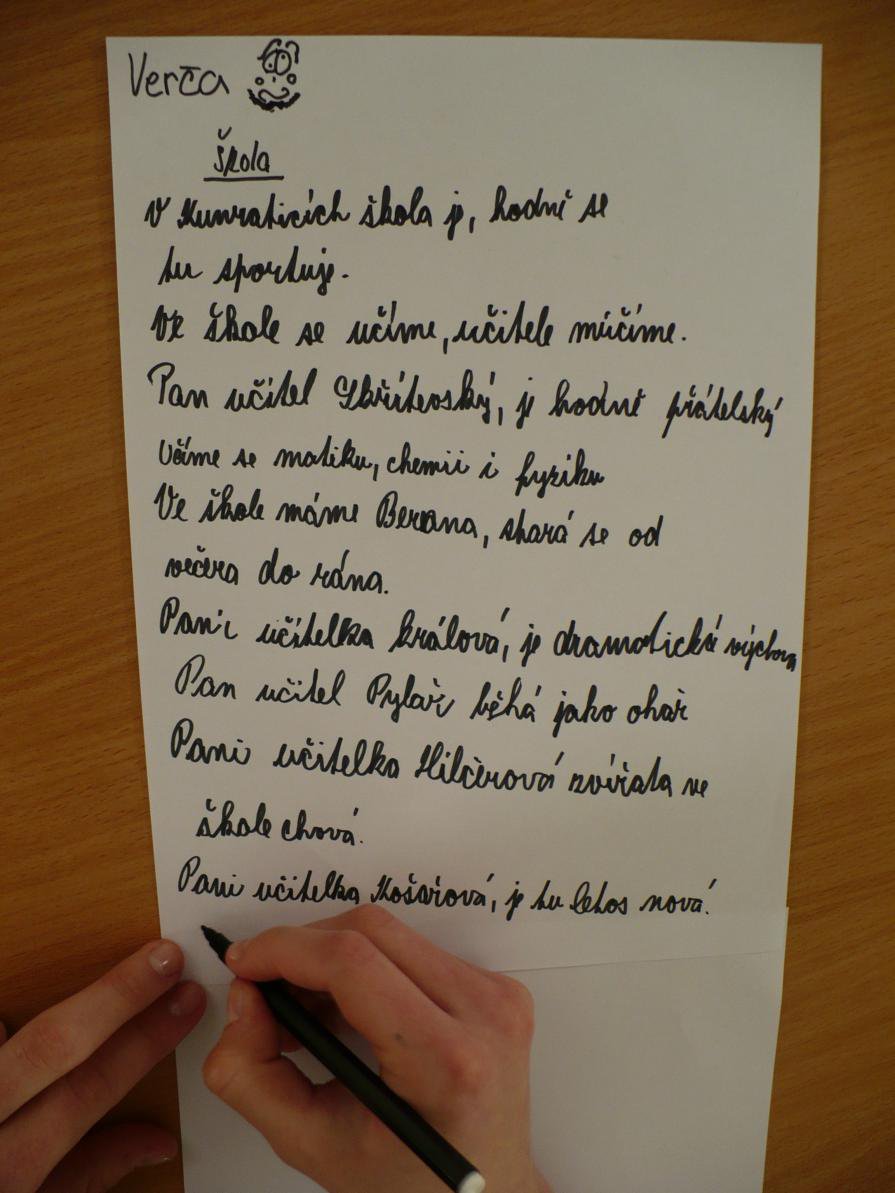 Verča
Škola
V Kunraticích škola je, hodně se
tu sportuje.
Ve škole se učíme, učitele múčíme.
Pan učitel Skřítevský, je hodně přátelský
Učíme se matiku, chemii i fyziku
Ve škole máme Berana, stará se od
večera do rána.
Paní učitelka králová, je dramatická výchova
Pan učitel Pylař běhá jako ohař
Pani učitelka Hilčerová zvířata ve
škole chová.
Pani učitelka Košařová, je tu letos nová.